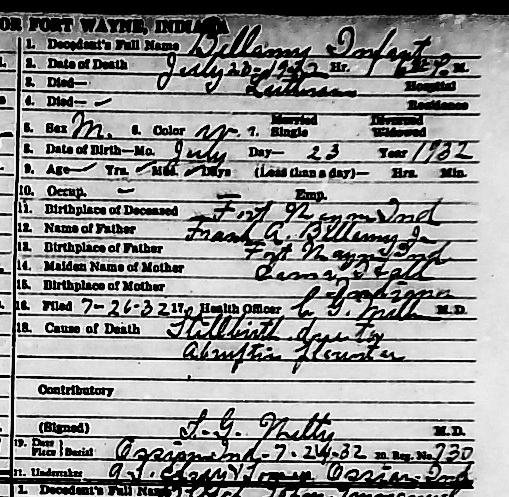 OR FORT WAYNE, INDIANA
1. Decedent's Full Name Bellamy Infant
2. Date of Death July 1932 Hr. M.
3. Died— Lutheran Hospital
4. Died— Residence
5. Sex M. 6. Color W. 7. Married Single Divorced Widowed
8. Date of Birth—Mo. July Day— 23 Year 1932
9. Age— Yrs. Mos. Days (Less than a day)— Hrs. Min.
10. Occup. — Emp.
11. Birthplace of Deceased Fort Wayne Ind
12. Name of Father Frank A. Bellamy Jr
13. Birthplace of Father Fort Wayne Ind
14. Maiden Name of Mother
15. Birthplace of Mother Indiana
16. Filed 7-26-32 17. Health Officer M.D.
18. Cause of Death Stillbirth due to
Abruptio placenta
Contributory
(Signed) M.D.
19. Date Place Burial Ossian Ind-7-24-32 20. Reg. No. 730
21. Undertaker Ossian Ind
1. Decedent's Full Name